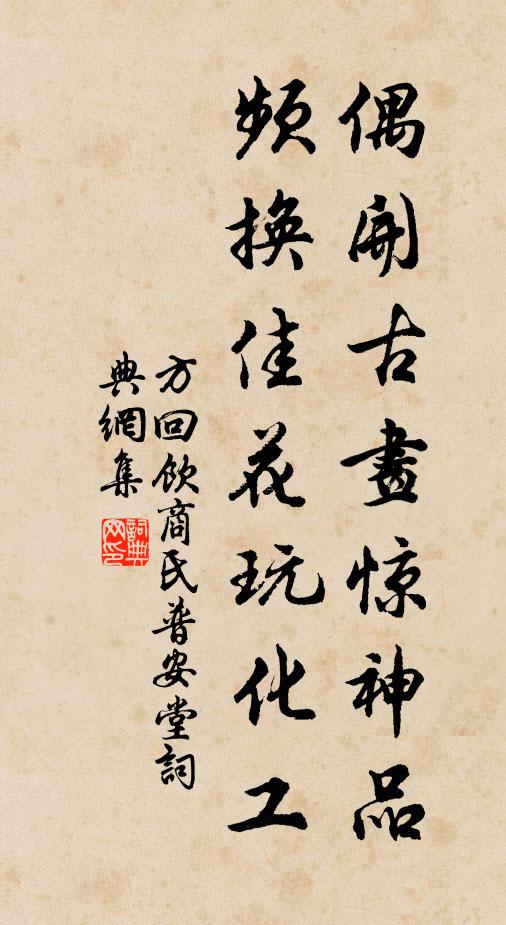 偶開古畫惊神品
頻換佳花玩化工
方回飲商氏普安堂詞
典網集
詞典網印